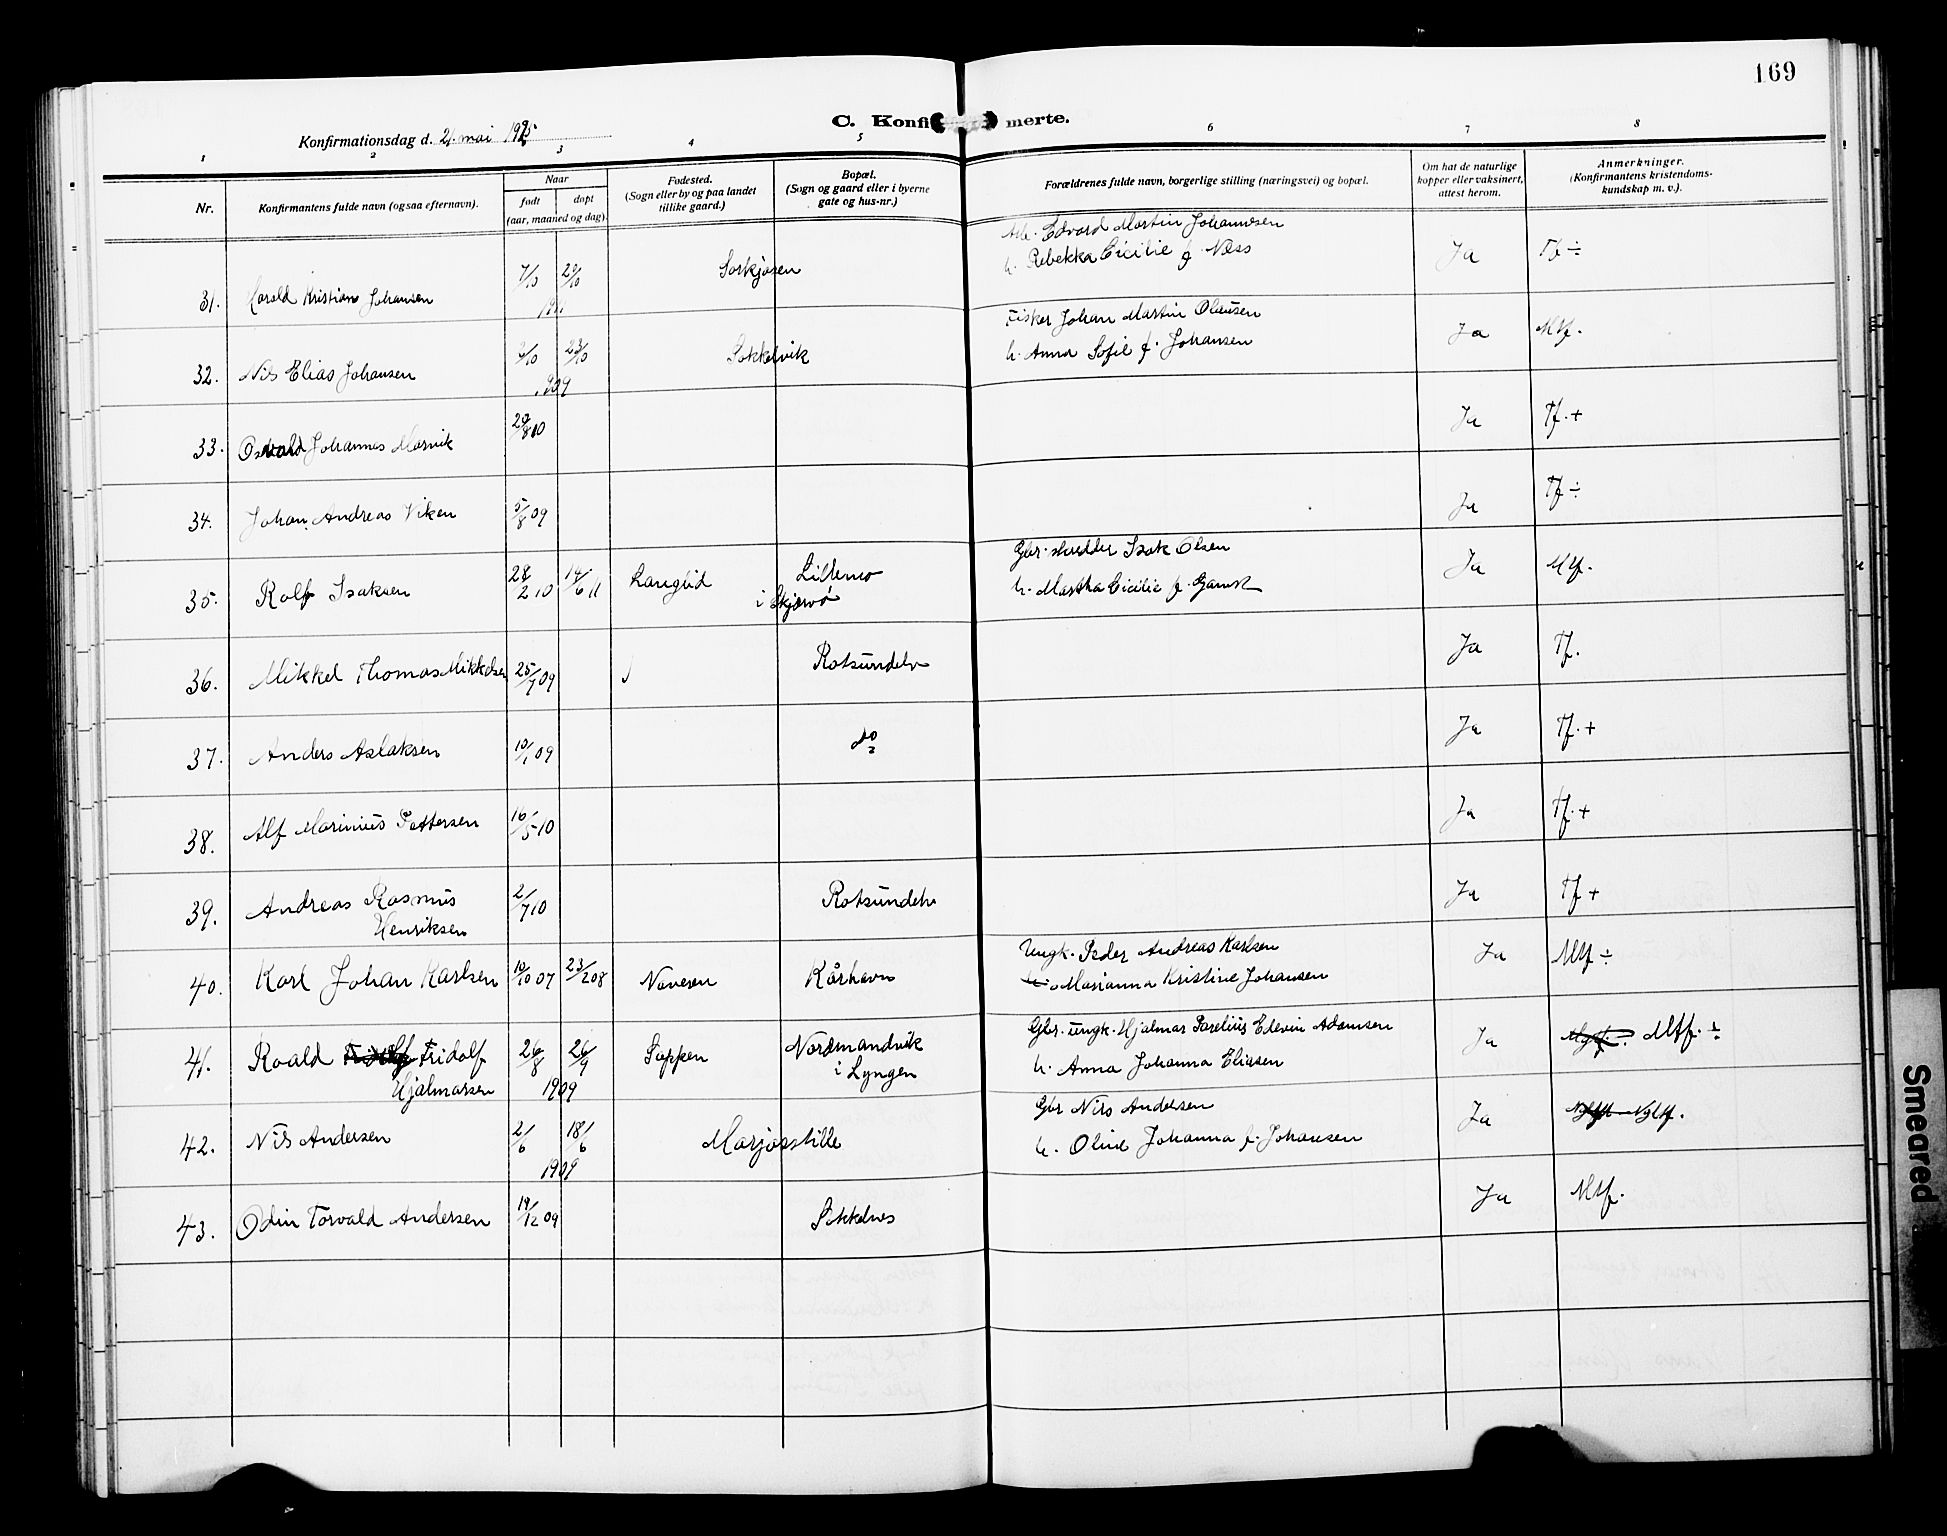 169
C. Konfi merte.
Konfirmationsdag d. 21. mai 1925
1 2 3 4 5 6 7 8
Nr.
Konfirmantens fulde navn (ogsaa efternavn).
Naar
født døpt
(aar, maaned og dag).
Fødested.
(Sogn eller by og paa landet
tillike gaard.)
Bopæl.
(Sogn og gaard eller i byerne
gate og hus-nr.)
Forældrenes fulde navn, borgerlige stilling (næringsvei) og bopæl.
Om hat de naturlige
kopper eller vaksinert,
attest herom.
Anmerkninger.
(Konfirmantens kristendoms-
kundskap m. v.).
31. Harald Kristian Johansen 7/10 29/10 1911 Sørkjosen
Arb. Edvard Martin Johannesen
h. Rebekka Cicilie f. Ness
Ja Tf ÷
32. Nils Elias Johansen 2/10 23/10 1909 Sokkelvik
Fisker Johan Martin Olaisen
h. Anna Sofie f. Johansen
Ja Mtf.
33. Osvald Johannes Marvik 29/8 10 Ja Tf. +
34. Johan Andreas Viken 5/8 09 Ja Tf ÷
35. Rolf Isaksen 28/2 10 14/6 11 Langlid Lillemo
i Skjervø
Gbr. skredder Isak Olsen
h. Martha Cicilie f. Garvik
Ja Mtf.
36. Mikkel Thomas Mikkelsen 25/7 09 Rotsundelv Ja Tf.
37. Anders Aslaksen 10/1 09 do Ja Tf. +
38. Alf Marinius Pettersen 16/5 10 Ja Tf. +
39. Andreas Rasmus
Henriksen 2/7 10 Rotsundelv Ja Tf +
40. Karl Johan Karlsen 10/10 07 23/2 08 Naveren Kårhavn
Ungk. Peder Andreas Karlsen
Marianna Kristine Johansen
Ja Mtf ÷
41. Roald Fridolf
Hjalmarsen 26/8 26/9 1909 Sappen Nordmandvik
i Lyngen
Gbr. ungk. Hjalmar Parelius Edevin Adamsen
h. Anna Johanna Eliasen
Ja Mtf. ÷
42. Nils Andersen 2/6 18/6 1909 Marjosstille
Gbr Nils Andersen
h. Oline Johanna f. Johansen
Ja Ngltf.
43. Odin Torvald Andersen 19/12 09 Sokkelnes Ja Mtf.
Smeared